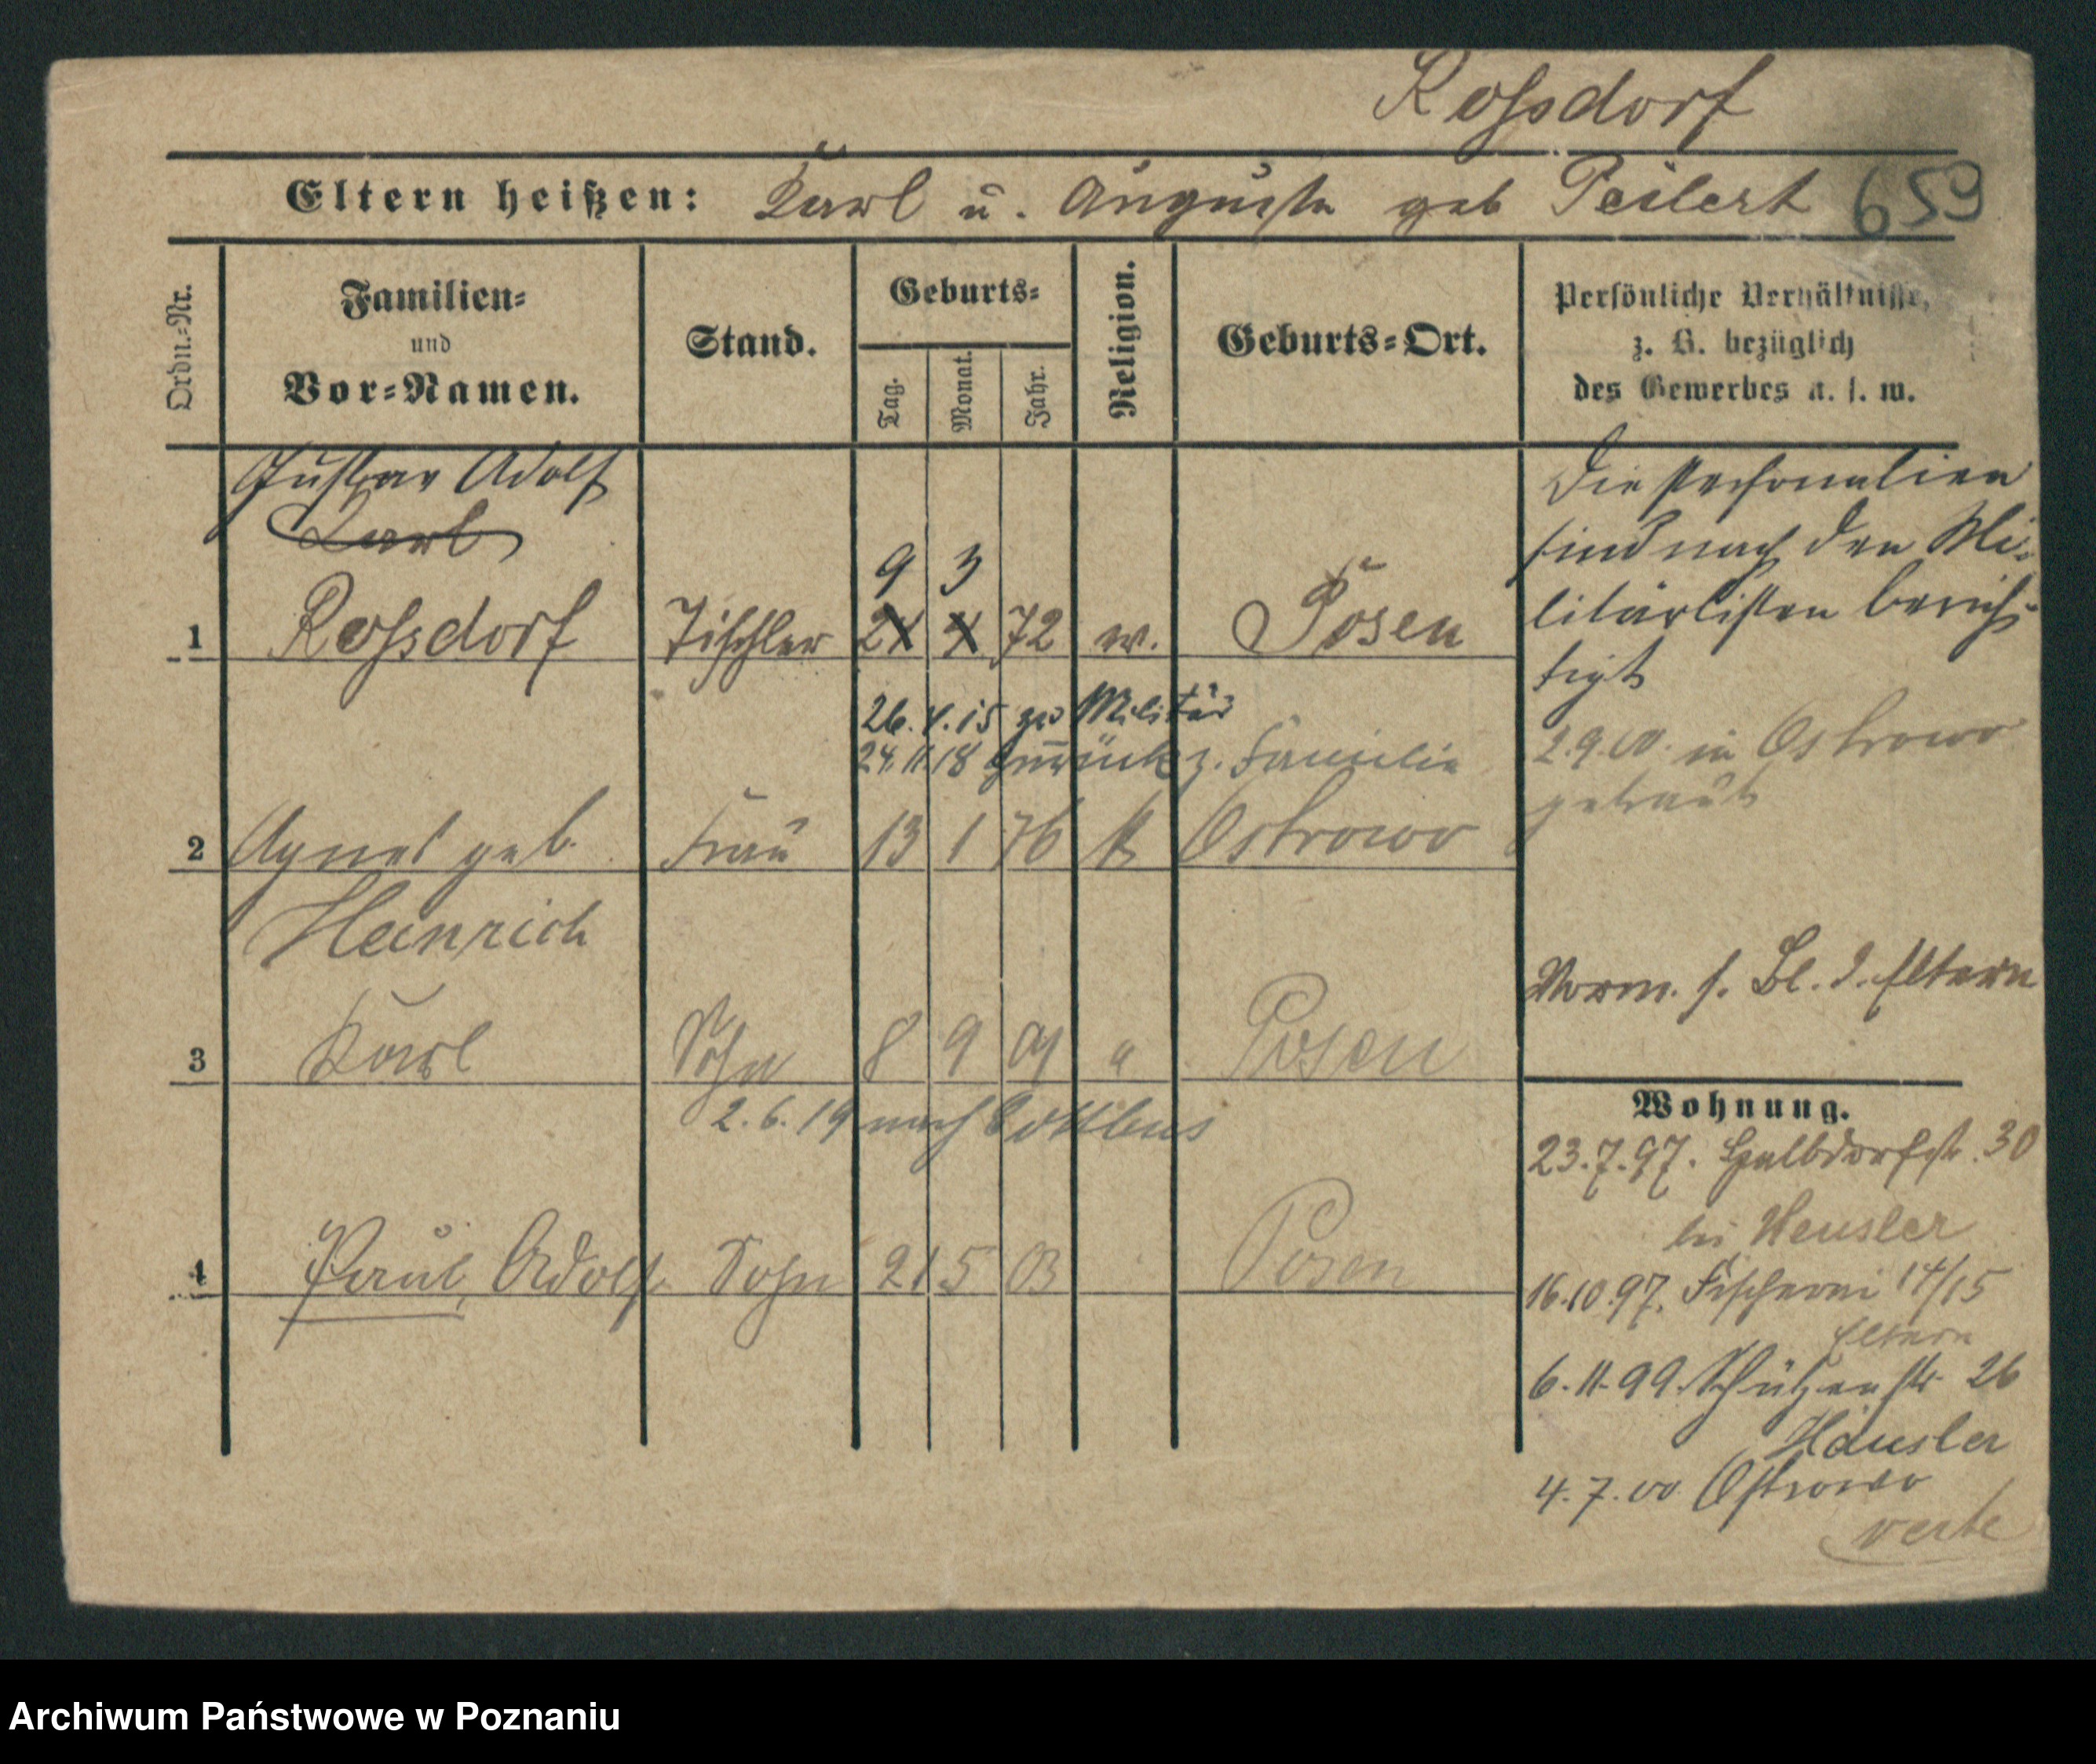 Roſsdorf
Eltern heißen: Karl u. Auguste geb Peilert 659
Ordn.=Nr.
Familien=
und
Vor=Namen.
Stand.
Geburts=
Tag.
Monat.
Jahr.
Religion.
Geburts=Ort.
Persönliche Verhältnisse,
z. B. bezüglich
des Gewerbes u. s. w.
Gustav Adolf
Karl
9 3
1 Roſsdorf Tischler 24 4 72 ev. Posen
26.4.15 zu Militär
24.11.18 zurück z. Familie
2 Agnes geb. Frau 13 1 76 k Ostrowo
Heinrich
3 Karl Sohn 8 9 01 " Posen
2.6.19 nach Cottbus
4 Paul, Adolf Sohn 21 5 03 Posen
Die Personalien
sind nach den Mi-
litärlisten berich-
tigt
2.9.00. in Ostrowo
getraut
Vorm. s. Bl. d. Eltern
Wohnung.
23.7.97. Halbdorfstr. 30
bei Heusler
16.10.97. Fischerei 14/15
Eltern
6.11.99. Schützenstr. 26
Häusler
4.7.00 Ostrowo
verte
Archiwum Państwowe w Poznaniu